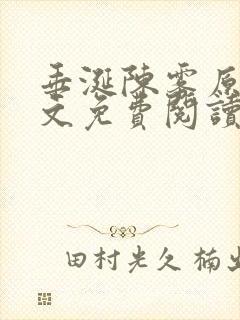 垂涎陳霧原
文免費閱讀
田村光久 楠出